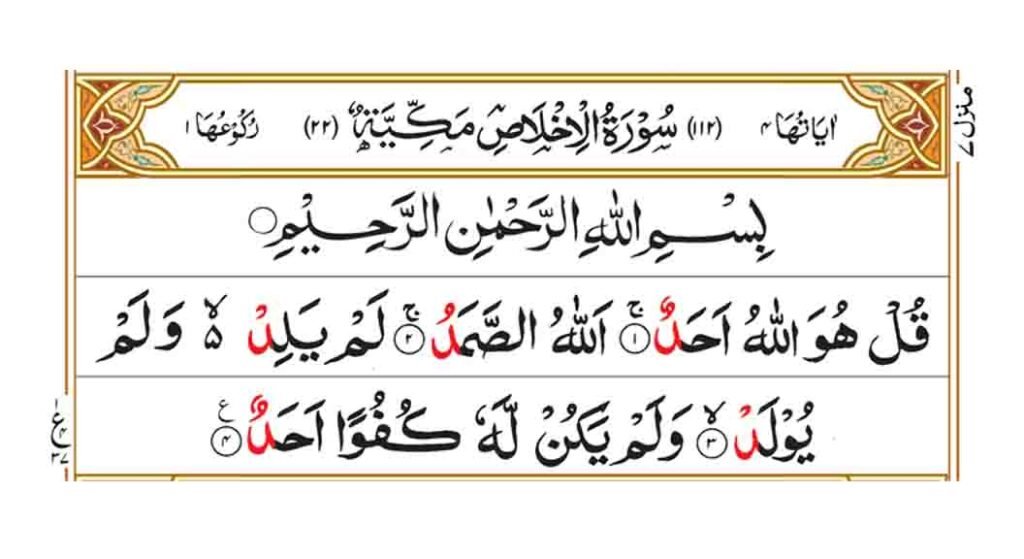 اٰيَاتُهَا ٤ (١١٢) سُوْرَةُ الْاِخْلَاصِ مَكِّيَّةٌ (٢٢) رُكُوْعُهَا ١
منزل ٧
بِسْمِ اللهِ الرَّحْمٰنِ الرَّحِيْمِ ۝
قُلْ هُوَ اللهُ اَحَدٌ ۚ ۝١ اَللهُ الصَّمَدُ ۚ ۝٢ لَمْ يَلِدْ ۙ۬ ۵ وَلَمْ
يُوْلَدْ ۙ ۝٣ وَلَمْ يَكُنْ لَّهٗ كُفُوًا اَحَدٌ ۝٤ ع
١
ع
٤
٣٧